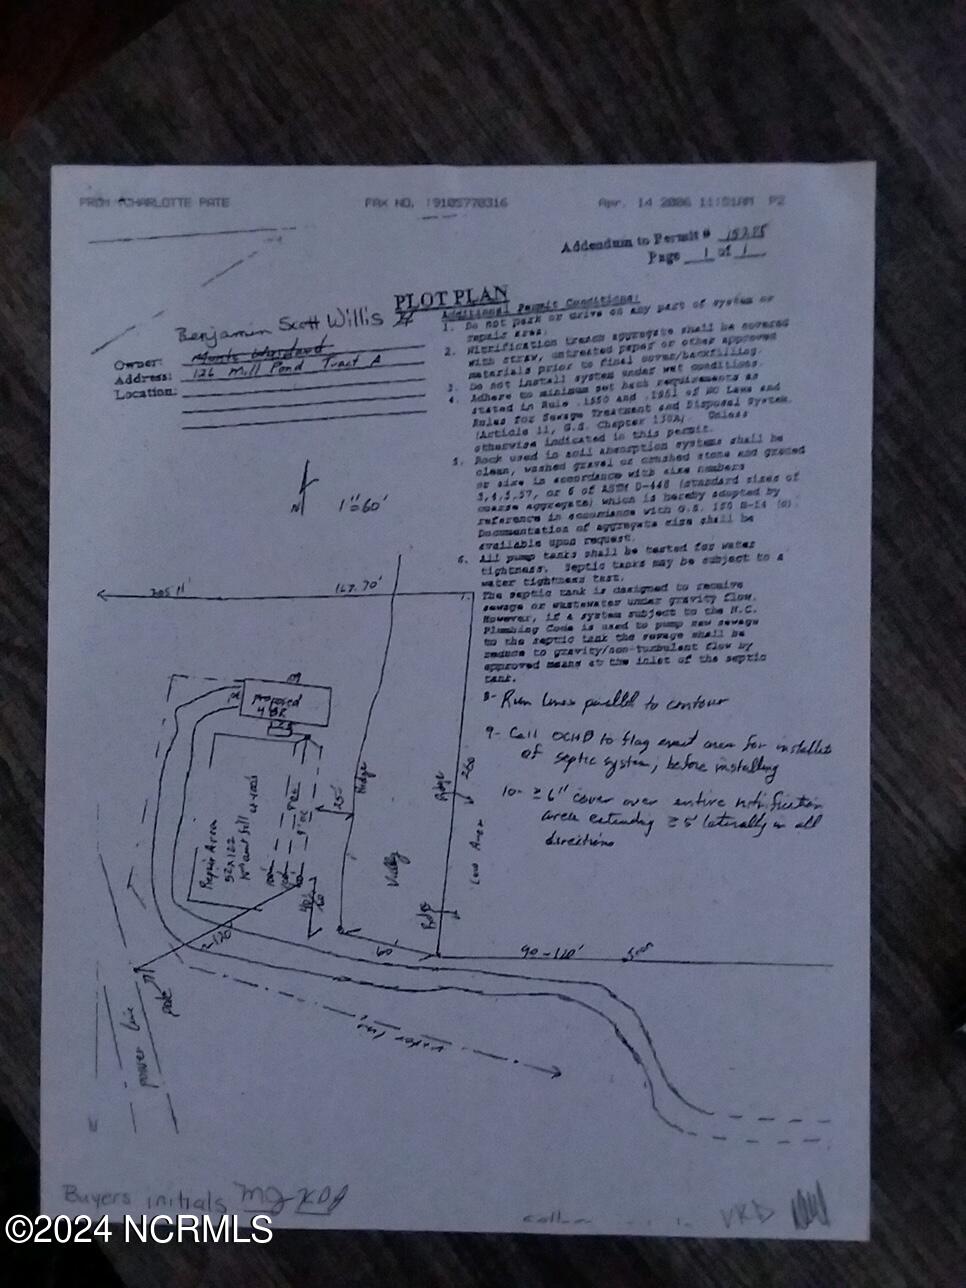 FROM : CHARLOTTE PATE FAX NO. : 9105770316 Apr. 14 2006 11:51AM P2
Addendum to Permit # 15285
Page 1 of 1
PLOT PLAN
Benjamin Scott Willis II
Owner:
Address: 126 Mill Pond Tract A
Location:
Additional Permit Conditions:
1. Do not park or drive on any part of system or
repair area.
2. Nitrification trench aggregate shall be covered
with straw, untreated paper or other approved
materials prior to final cover/backfilling.
3. Do not install system under wet conditions.
4. Adhere to minimum set back requirements as
stated in Rule .1950 and .1951 of NC Laws and
Rules for Sewage Treatment and Disposal System.
(Article 11, G.S. Chapter 130A). Unless
otherwise indicated in this permit.
5. Rock used in soil absorption systems shall be
clean, washed gravel or crushed stone and graded
or size in accordance with size numbers
3,4,5,57, or 6 of ASTM D-448 (standard sizes of
coarse aggregate) which is hereby adopted by
reference in accordance with G.S. 150 B-14 (c).
Documentation of aggregate size shall be
available upon request.
6. All pump tanks shall be tested for water
tightness. Septic tanks may be subject to a
water tightness test.
7. The septic tank is designed to receive
sewage or wastewater under gravity flow.
However, if a system subject to the N.C.
Plumbing Code is used to pump raw sewage
to the septic tank the sewage shall be
reduce to gravity/non-turbulent flow by
approved means at the inlet of the septic
tank.
8- Run lines parallel to contour
9- Call OCHD to flag exact area for installation
of septic system, before installing
10- ≥6" cover over entire nitrification
area extending ≥5' laterally in all
directions
N 1"=60'
205.11' 167.70'
Proposed
4 BR
Repair Area
52x122
Ridge
Valley
Ridge
260
Low Area
Ridge
25'
60'
90-110'
~120'
pole
power line
water line
Buyers initials MJ KDJ
VKD
©2024 NCRMLS